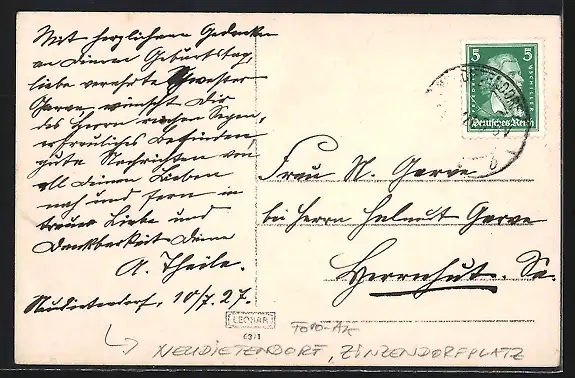 Mit herzlichem Gedenken
an Deinen Geburtstag,
liebe verehrte Schwester
Garve, wünscht Dir
des Herrn reichen Segen,
erfreuliches Befinden,
gute Nachrichten von
all Deinen Lieben
nah und fern in
treuer Liebe und
Dankbarkeit Deine
A. Theile.
Neudietendorf, 10/7. 27.
5 5
Deutsches Reich
Frau N. Garve
bei Herrn Helmut Garve
Herrnhut. Sa.
LEONAR
6371
FOTO-AK
NEUDIETENDORF, ZINZENDORFPLATZ